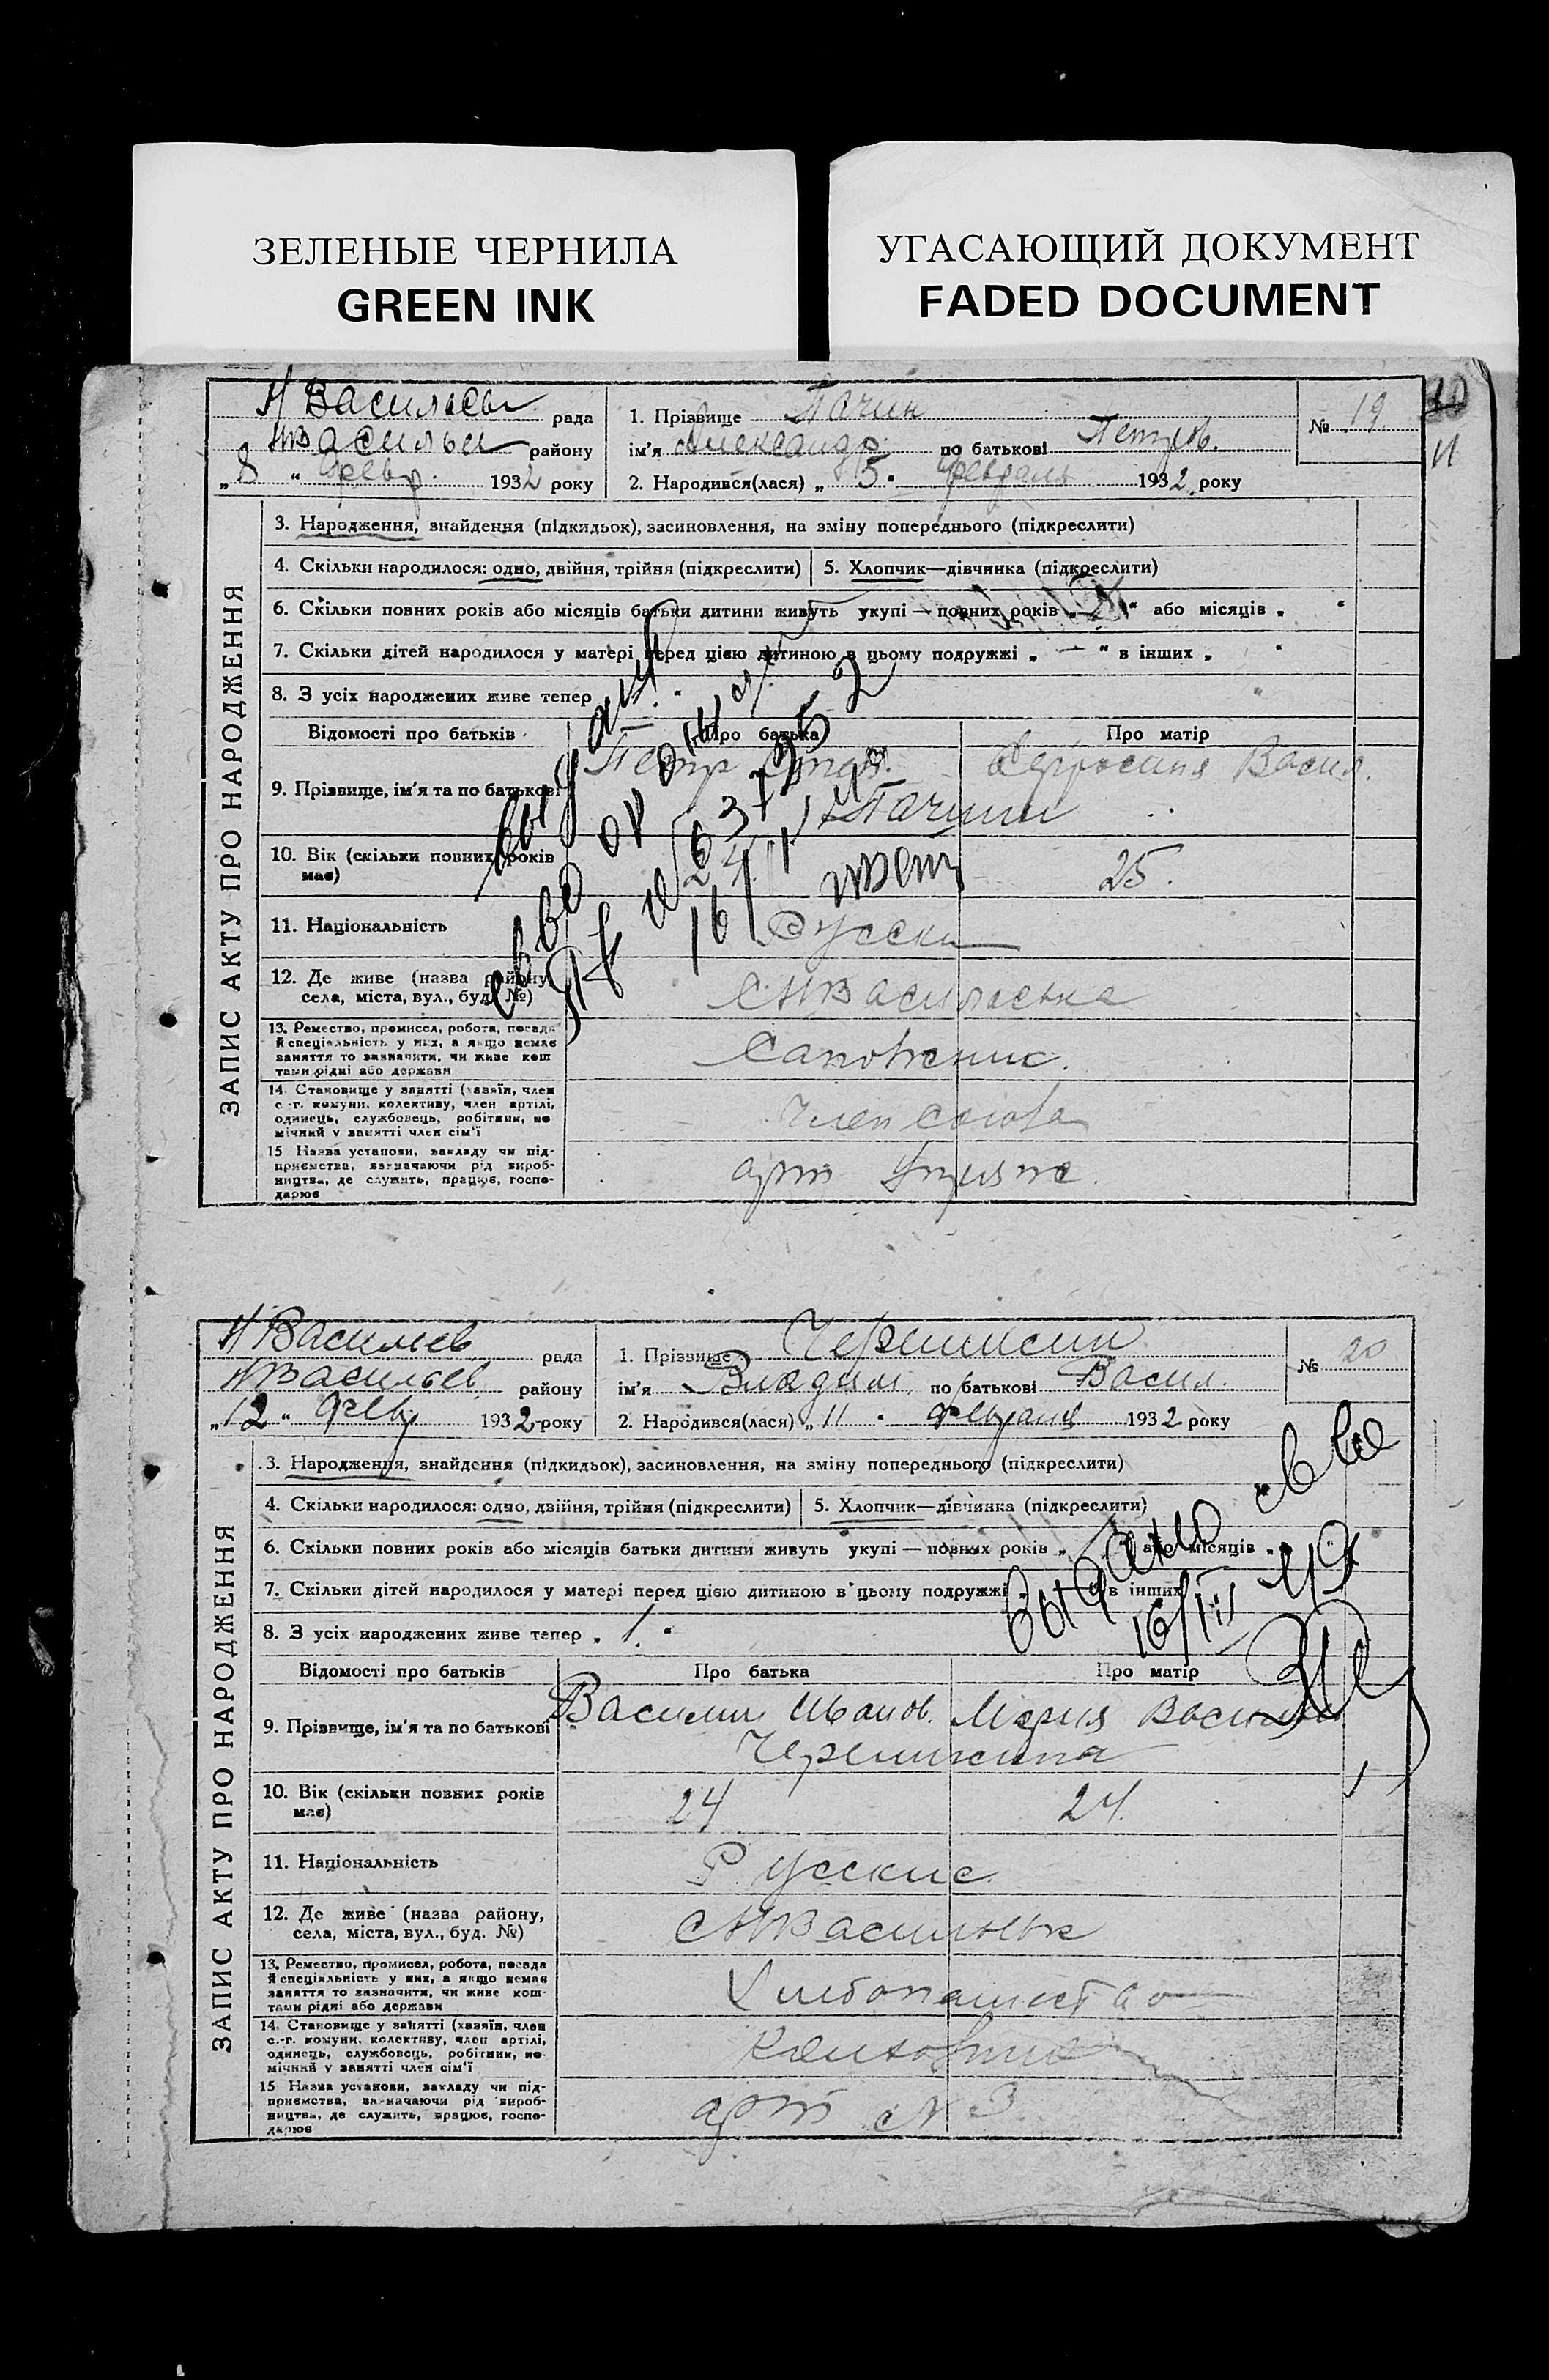 ЗЕЛЕНЫЕ ЧЕРНИЛА
GREEN INK
УГАСАЮЩИЙ ДОКУМЕНТ
FADED DOCUMENT
11
ЗАПИС АКТУ ПРО НАРОДЖЕННЯ
Н Васильев рада
НВасильев району
„8 “ февр. 1932 року
1. Прізвище Пачин
ім'я Александр по батькові Петров.
2. Народився(лася) „ 5 “ февраля 1932 року
№ 19
3. Народження, знайдення (підкидьок), засиновлення, на зміну попереднього (підкреслити)
4. Скільки народилося: одно, двійня, трійня (підкреслити)
5. Хлопчик—дівчинка (підкреслити)
6. Скільки повних років або місяців батьки дитини живуть укупі — повних років „ “ або місяців „ “
7. Скільки дітей народилося у матері перед цією дитиною в цьому подружжі „ — “ в інших „ “
8. З усіх народжених живе тепер
Відомості про батьків Про батька Про матір
9. Прізвище, ім'я та по батькові Петр Ефросиния Васил.
Пачини
10. Вік (скільки повних років має) 24 25.
11. Національність Русски
12. Де живе (назва району, села, міста, вул., буд. №) С НВасильевка
13. Ремество, промисел, робота, посада й спеціяльність у них, а якщо немає заняття то зазначити, чи живе кош тами рідні або держави Сапожник.
14. Становище у занятті (хазяїн, член с.-г. комуни, колективу, член артілі, одинець, службовець, робітник, по мічний у занятті член сім'ї Член союза
15 Назва установи, закладу чи під-приємства, зазначаючи рід вироб-ництва, де служить, працює, госпо-дарює арт
ЗАПИС АКТУ ПРО НАРОДЖЕННЯ
Н Васильев рада
НВасильев району
„12 “ февр 1932 року
1. Прізвище Черемисин
ім'я Владим. по батькові Васил.
2. Народився(лася) „ 11 “ февраля 1932 року
№ 20
3. Народження, знайдення (підкидьок), засиновлення, на зміну попереднього (підкреслити)
4. Скільки народилося: одно, двійня, трійня (підкреслити)
5. Хлопчик—дівчинка (підкреслити)
6. Скільки повних років або місяців батьки дитини живуть укупі — повних років „ “ або місяців „ “
7. Скільки дітей народилося у матері перед цією дитиною в цьому подружжі „ “ в інших
8. З усіх народжених живе тепер „ 1. “
выдано св во
16/III 49
Відомості про батьків Про батька Про матір
9. Прізвище, ім'я та по батькові Василий Иванов. Мария Васил
Черемисины
10. Вік (скільки повних років має) 24 24.
11. Національність Русские
12. Де живе (назва району, села, міста, вул., буд. №) С НВасильевк
13. Ремество, промисел, робота, посада й спеціяльність у них, а якщо немає заняття то зазначити, чи живе кош-тами рідні або держави Хлебопашество
14. Становище у занятті (хазяїн, член с.-г. комуни, колективу, член артілі, одинець, службовець, робітник, по-мічний у занятті член сім'ї
15 Назва установи, закладу чи під-приємства, зазначаючи рід вироб-ництва, де служить, працює, госпо-дарює арт № 3